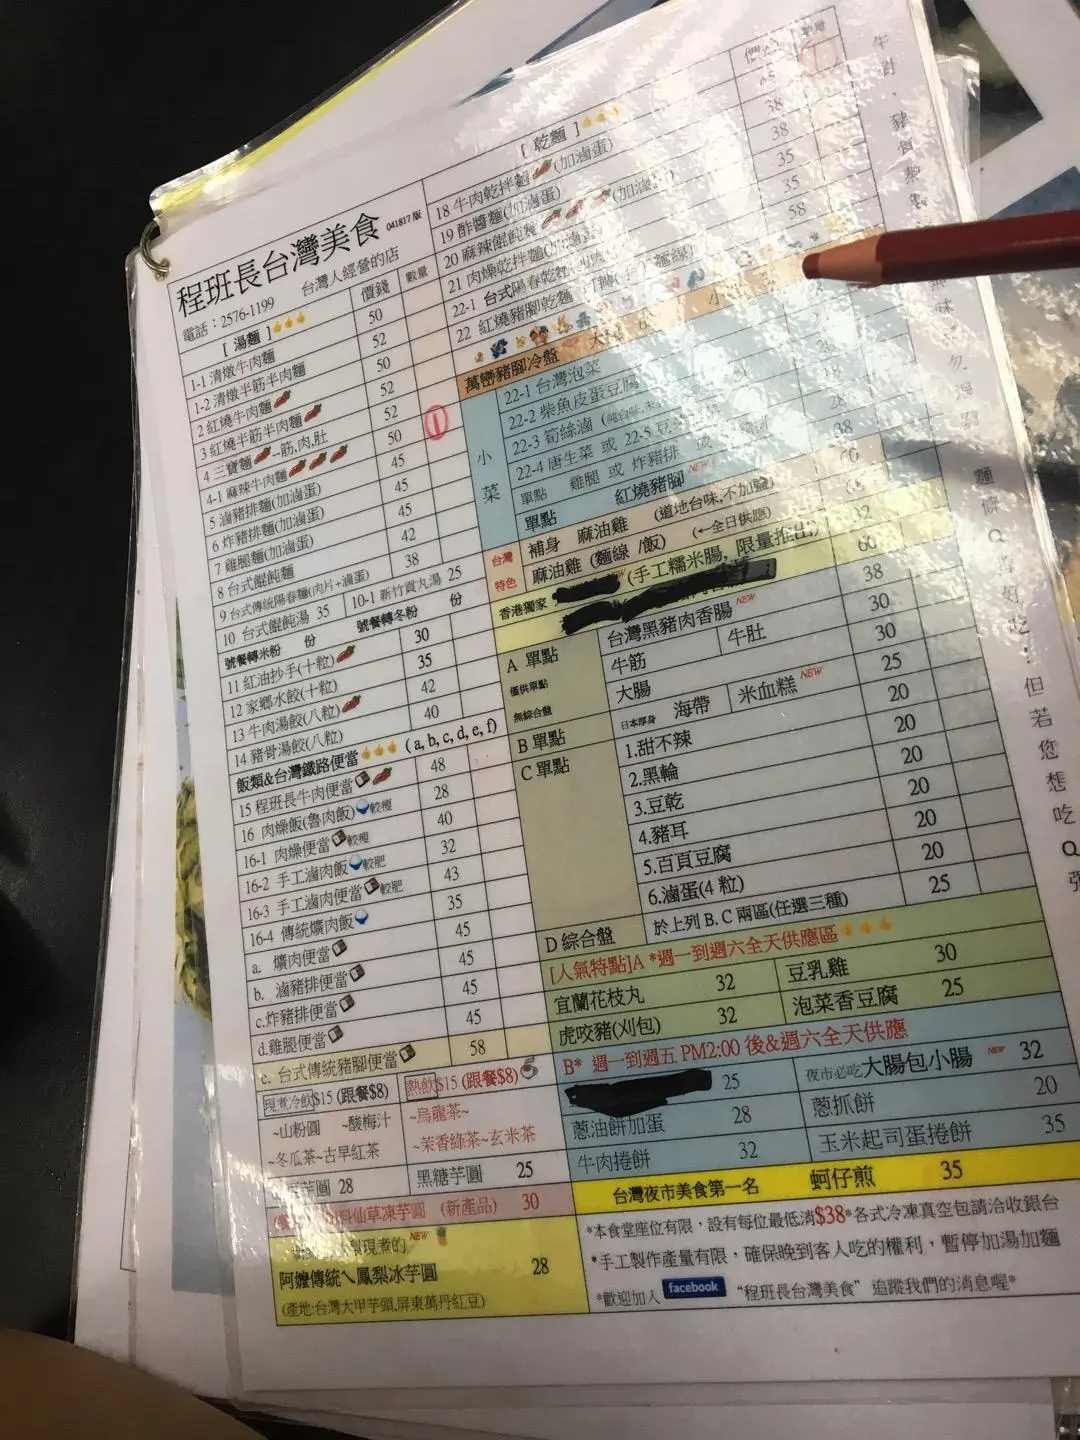 程班長台灣美食 041817 版
電話：2576-1199 台灣人經營的店
[ 湯麵 ] 價錢 數量
1-1 清燉牛肉麵 50
1-2 清燉半筋半肉麵 52
2 紅燒牛肉麵 50
3 紅燒半筋半肉麵 52
4 三寶麵 --筋,肉,肚 52 ①
4-1 麻辣牛肉麵 50
5 滷豬排麵(加滷蛋) 45
6 炸豬排麵(加滷蛋) 45
7 雞腿麵(加滷蛋) 45
8 台式餛飩麵 42
9 台式傳統陽春麵(肉片+滷蛋) 38
10 台式餛飩湯 35 10-1 新竹貢丸湯 25
號餐轉米粉 份 號餐轉冬粉 份
11 紅油抄手(十粒) 30
12 家鄉水餃(十粒) 35
13 牛肉湯餃(八粒) 42
14 豬骨湯餃(八粒) 40
飯類&台灣鐵路便當 ( a, b, c, d, e, f)
15 程班長牛肉便當 48
16 肉燥飯(魯肉飯) 較瘦 28
16-1 肉燥便當 較瘦 40
16-2 手工滷肉飯 較肥 32
16-3 手工滷肉便當 較肥 43
16-4 傳統爌肉飯 35
a. 爌肉便當 45
b. 滷豬排便當 45
c.炸豬排便當 45
d.雞腿便當 45
e. 台式傳統豬腳便當 58
現煮冷飲$15 (跟餐$8) 熱飲$15 (跟餐$8)
~山粉圓 ~酸梅汁 ~烏龍茶~
~冬瓜茶~古早紅茶 ~茉香綠茶~玄米茶
豆芋圓 28 黑糖芋圓 25
仙草凍芋圓 (新產品) 30
現煮的 NEW
阿嬤傳統ㄟ鳳梨冰芋圓 28
(產地:台灣大甲芋頭,屏東萬丹紅豆)
[ 乾麵 ] 數量
18 牛肉乾拌麵 (加滷蛋) 45 ①
19 酢醬麵(加滷蛋) 38
20 麻辣餛飩麵 38
21 肉燥乾拌麵(加滷蛋) 35
22-1 台式陽春乾麵 35
22 紅燒豬腳乾麵 58
萬巒豬腳冷盤 大 小
小菜
22-1 台灣泡菜
22-2 柴魚皮蛋豆腐
22-3 筍絲滷
22-4 唐生菜 或 22-5
單點 雞腿 或 炸豬排 或 28
單點 紅燒豬腳 NEW 38
台灣特色
補身 麻油雞 (道地台味,不加鹽) 60
麻油雞 (麵線 /飯) (←全日供應) 68
香港獨家 NEW (手工糯米腸, 限量推出) 32
60
A 單點 台灣黑豬肉香腸 NEW 38
僅供單點 牛筋 牛肚 30
無綜合盤 大腸 30
B 單點 日本厚身 海帶 米血糕 NEW 25
C 單點 1.甜不辣 20
2.黑輪 20
3.豆乾 20
4.豬耳 20
5.百頁豆腐 20
6.滷蛋(4 粒) 20
D 綜合盤 於上列 B. C 兩區(任選三種) 25
[人氣特點]A *週一到週六全天供應區
宜蘭花枝丸 32 豆乳雞 30
虎咬豬(刈包) 32 泡菜香豆腐 25
B* 週一到週五 PM2:00 後&週六全天供應
25 夜市必吃大腸包小腸 NEW 32
蔥油餅加蛋 28 蔥抓餅 20
牛肉捲餅 32 玉米起司蛋捲餅 35
台灣夜市美食第一名 蚵仔煎 35
*本食堂座位有限，設有每位最低消$38*各式冷凍真空包請洽收銀台
*手工製作產量有限，確保晚到客人吃的權利，暫停加湯加麵
*歡迎加入 facebook “程班長台灣美食” 追蹤我們的消息喔*
麵條Q
好吃
但若您想吃Q